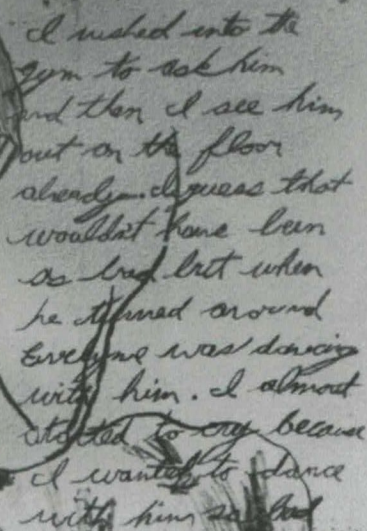 I rushed into the
gym to ask him
and then I see him
out on the floor
already. I guess that
wouldn't have been
as bad but when
he turned around
Evelyne was dancing
with him. I almost
started to cry because
I wanted to dance
with him so bad